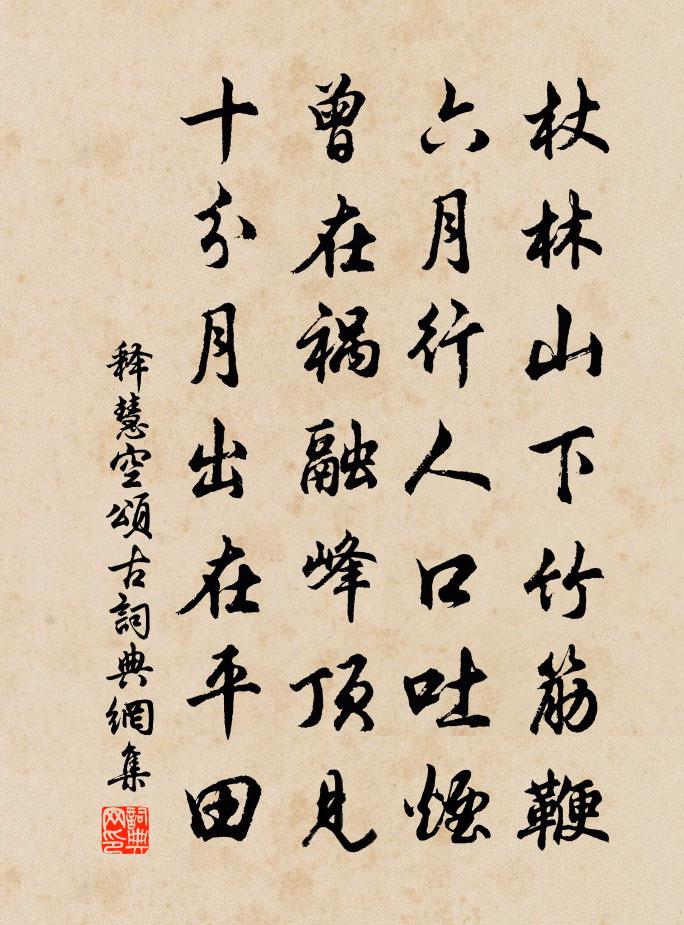 杖林山下竹筋鞭
六月行人口吐煙
曾在祸融峰顶見
十分月出在平田
释慧空頌古詞典網集
詞典网印